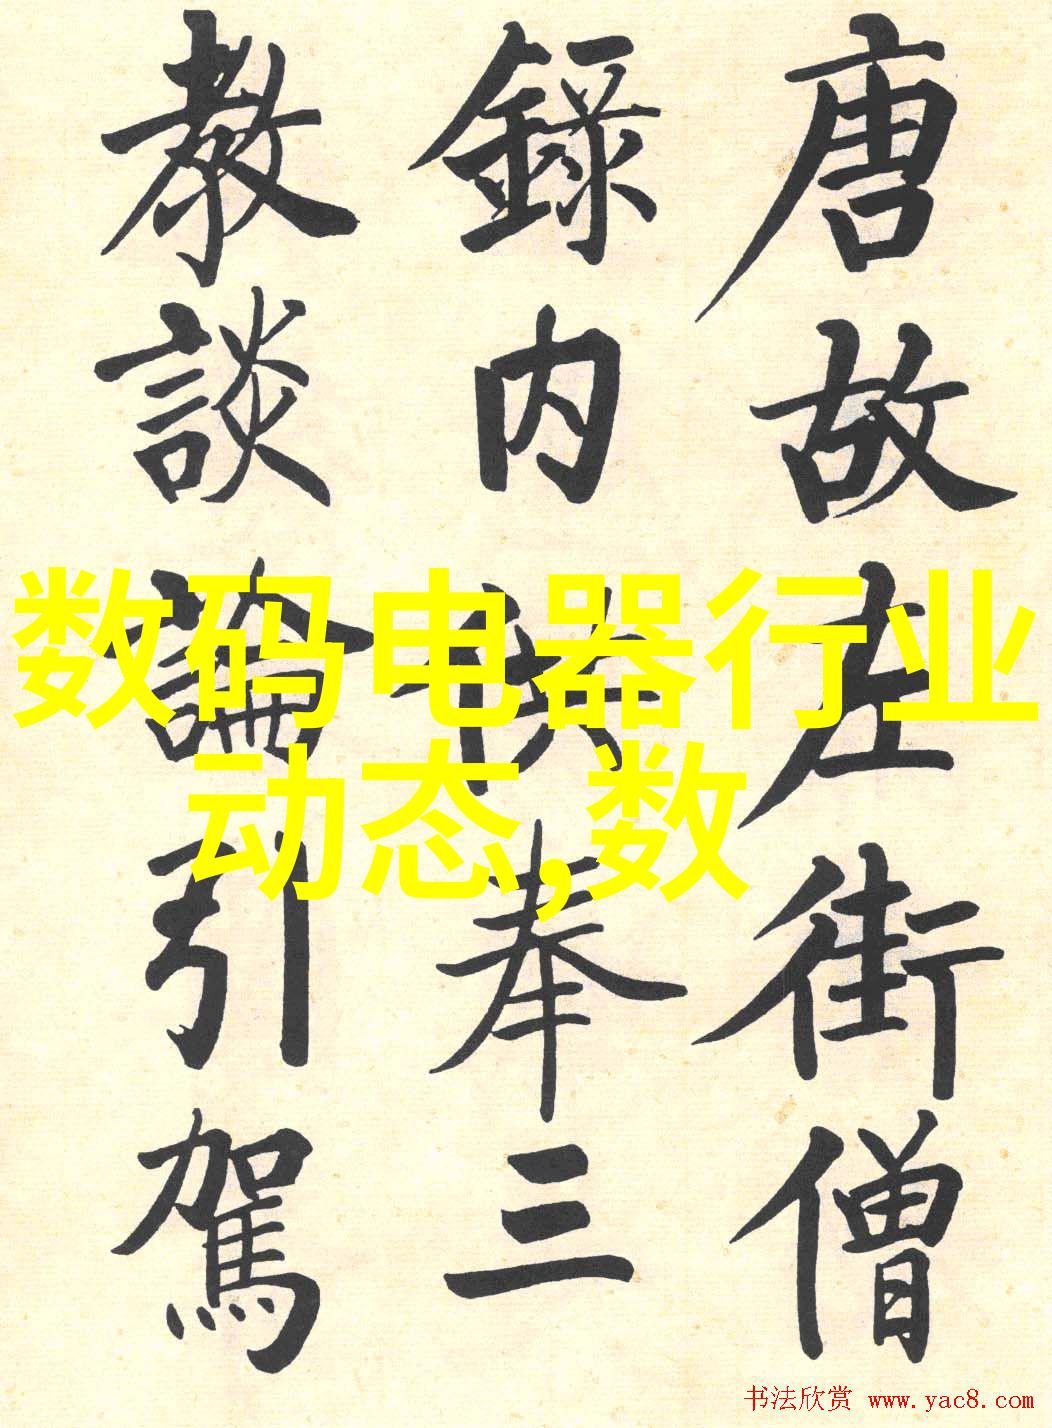 唐故左街僧
錄内供奉三
教談論引駕
数码电器行业
动态,数
书法欣赏 www.yac8.com